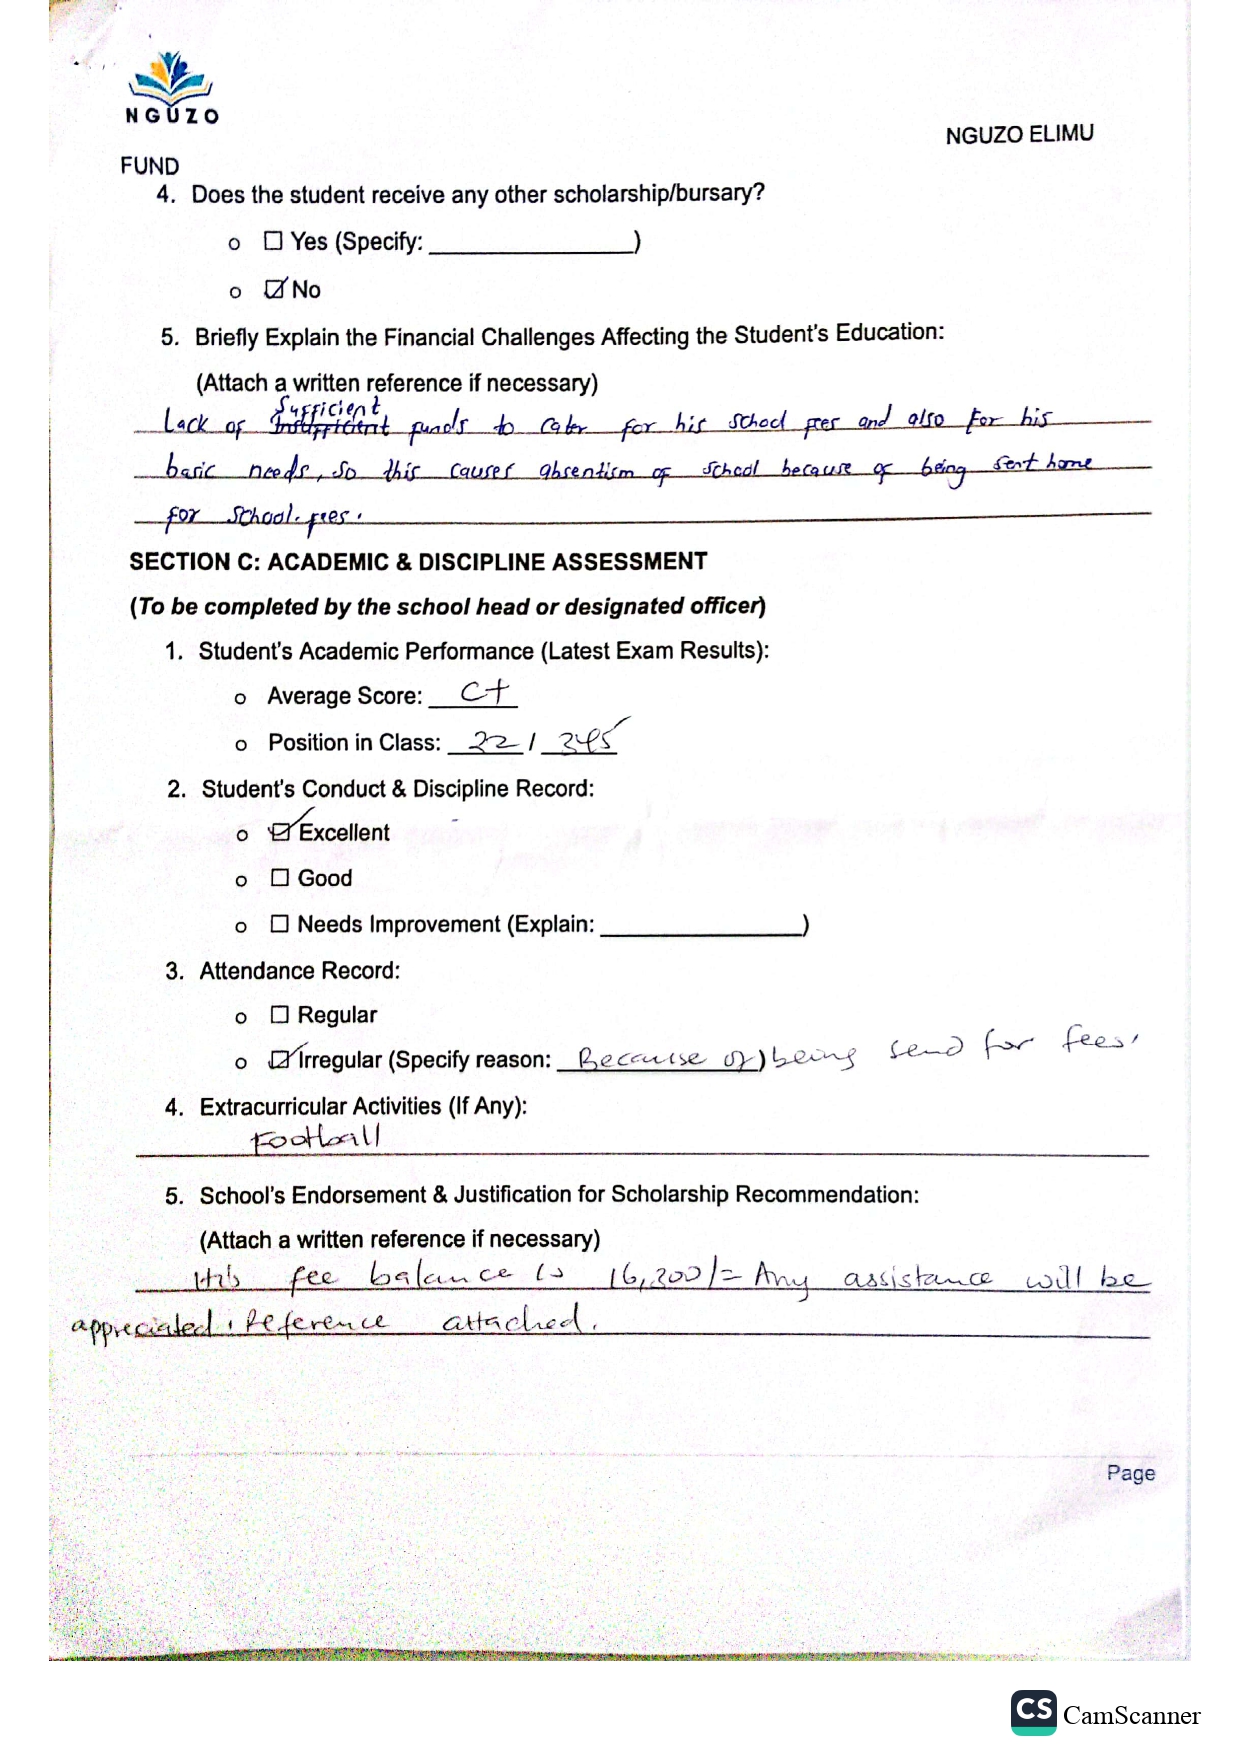 NGUZO
NGUZO ELIMU
FUND
4. Does the student receive any other scholarship/bursary?
o ☐ Yes (Specify: _______________)
o ☑ No
5. Briefly Explain the Financial Challenges Affecting the Student's Education:
(Attach a written reference if necessary)
Sufficient
Lack of Insufficient funds to cater for his school fees and also for his
basic needs, so this causes absentism of school because of being sent home
for school fees.
SECTION C: ACADEMIC & DISCIPLINE ASSESSMENT
(To be completed by the school head or designated officer)
1. Student's Academic Performance (Latest Exam Results):
o Average Score: C+
o Position in Class: 22 / 345
2. Student's Conduct & Discipline Record:
o ☑ Excellent
o ☐ Good
o ☐ Needs Improvement (Explain: _______________)
3. Attendance Record:
o ☐ Regular
o ☑ Irregular (Specify reason: Because of) being send for fees.
4. Extracurricular Activities (If Any):
Football
5. School's Endorsement & Justification for Scholarship Recommendation:
(Attach a written reference if necessary)
His fee balance is 16,200/= Any assistance will be
appreciated. Reference attached.
Page
CS CamScanner